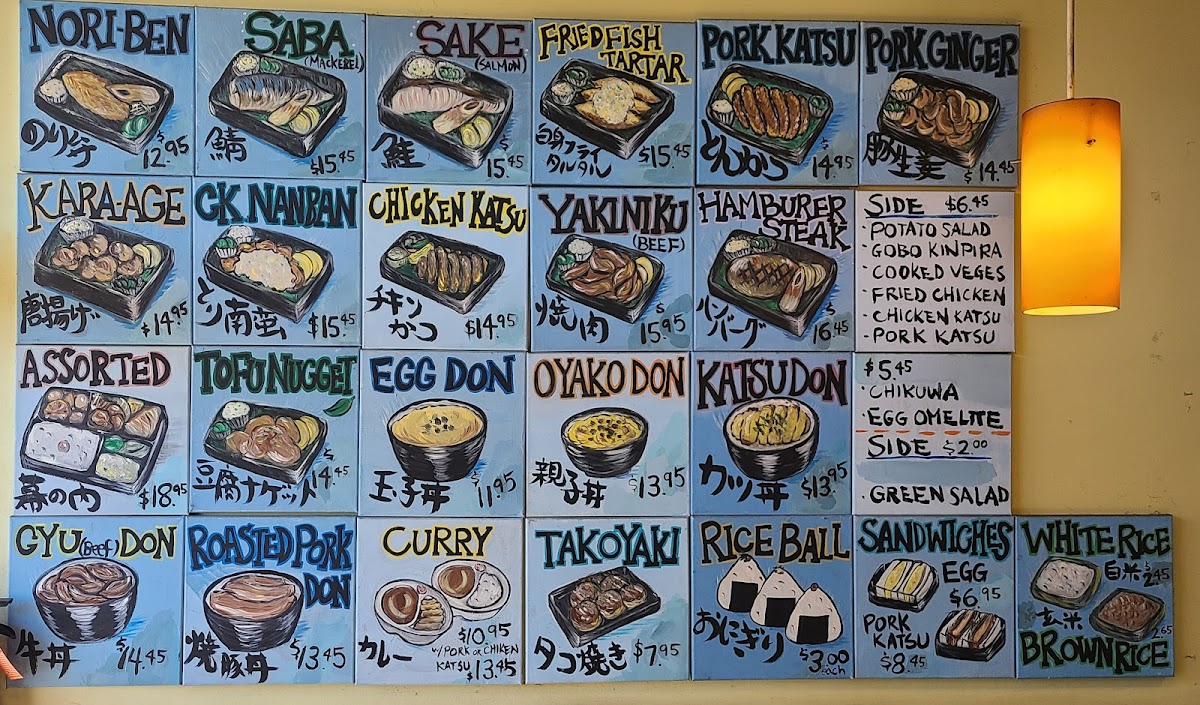 NORI-BEN
のり弁
$12.95
SABA
(MACKEREL)
鯖
$15.45
SAKE
(SALMON)
鮭
$15.45
FRIED FISH
TARTAR
白身フライ
タルタル
$15.45
PORK KATSU
とんかつ
$14.95
PORK GINGER
豚生姜
$14.45
KARA-AGE
唐揚げ
$14.95
CK NANBAN
とり南蛮
$15.45
CHICKEN KATSU
チキン
かつ
$14.95
YAKINIKU
(BEEF)
焼肉
$15.95
HAMBURER
STEAK
ハンバーグ
$16.45
SIDE $6.45
・POTATO SALAD
・GOBO KINPIRA
・COOKED VEGES
・FRIED CHICKEN
・CHICKEN KATSU
・PORK KATSU
ASSORTED
幕の内
$18.95
TOFU NUGGET
豆腐ナゲット
$14.45
EGG DON
玉子丼
$11.95
OYAKO DON
親子丼
$13.95
KATSU DON
カツ丼
$13.95
$5.45
・CHIKUWA
・EGG OMELTTE
SIDE $2.00
・GREEN SALAD
GYU (Beef) DON
牛丼
$14.45
ROASTED PORK
DON
焼豚丼
$13.45
CURRY
カレー
$10.95
w/ PORK or CHIKEN
KATSU $13.45
TAKOYAKI
タコ焼き
$7.95
RICE BALL
おにぎり
$3.00
each
SANDWICHES
EGG
$6.95
PORK
KATSU
$8.45
WHITE RICE
白米 $2.45
玄米
2.65
BROWN RICE